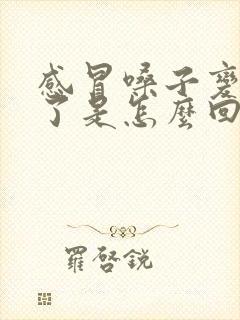 感冒嗓子變
了是怎麼回
羅啓銳